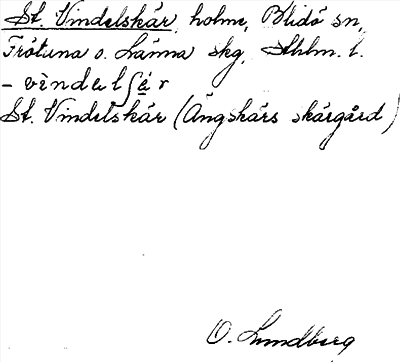 St. Vindelskär, holme, Blidö sn,
Frötuna o. Länna skg, Sthlm. l.
- vìndəlʃæ̀r
St. Vindelskär (Ängskärs skärgård)
O. Lundberg